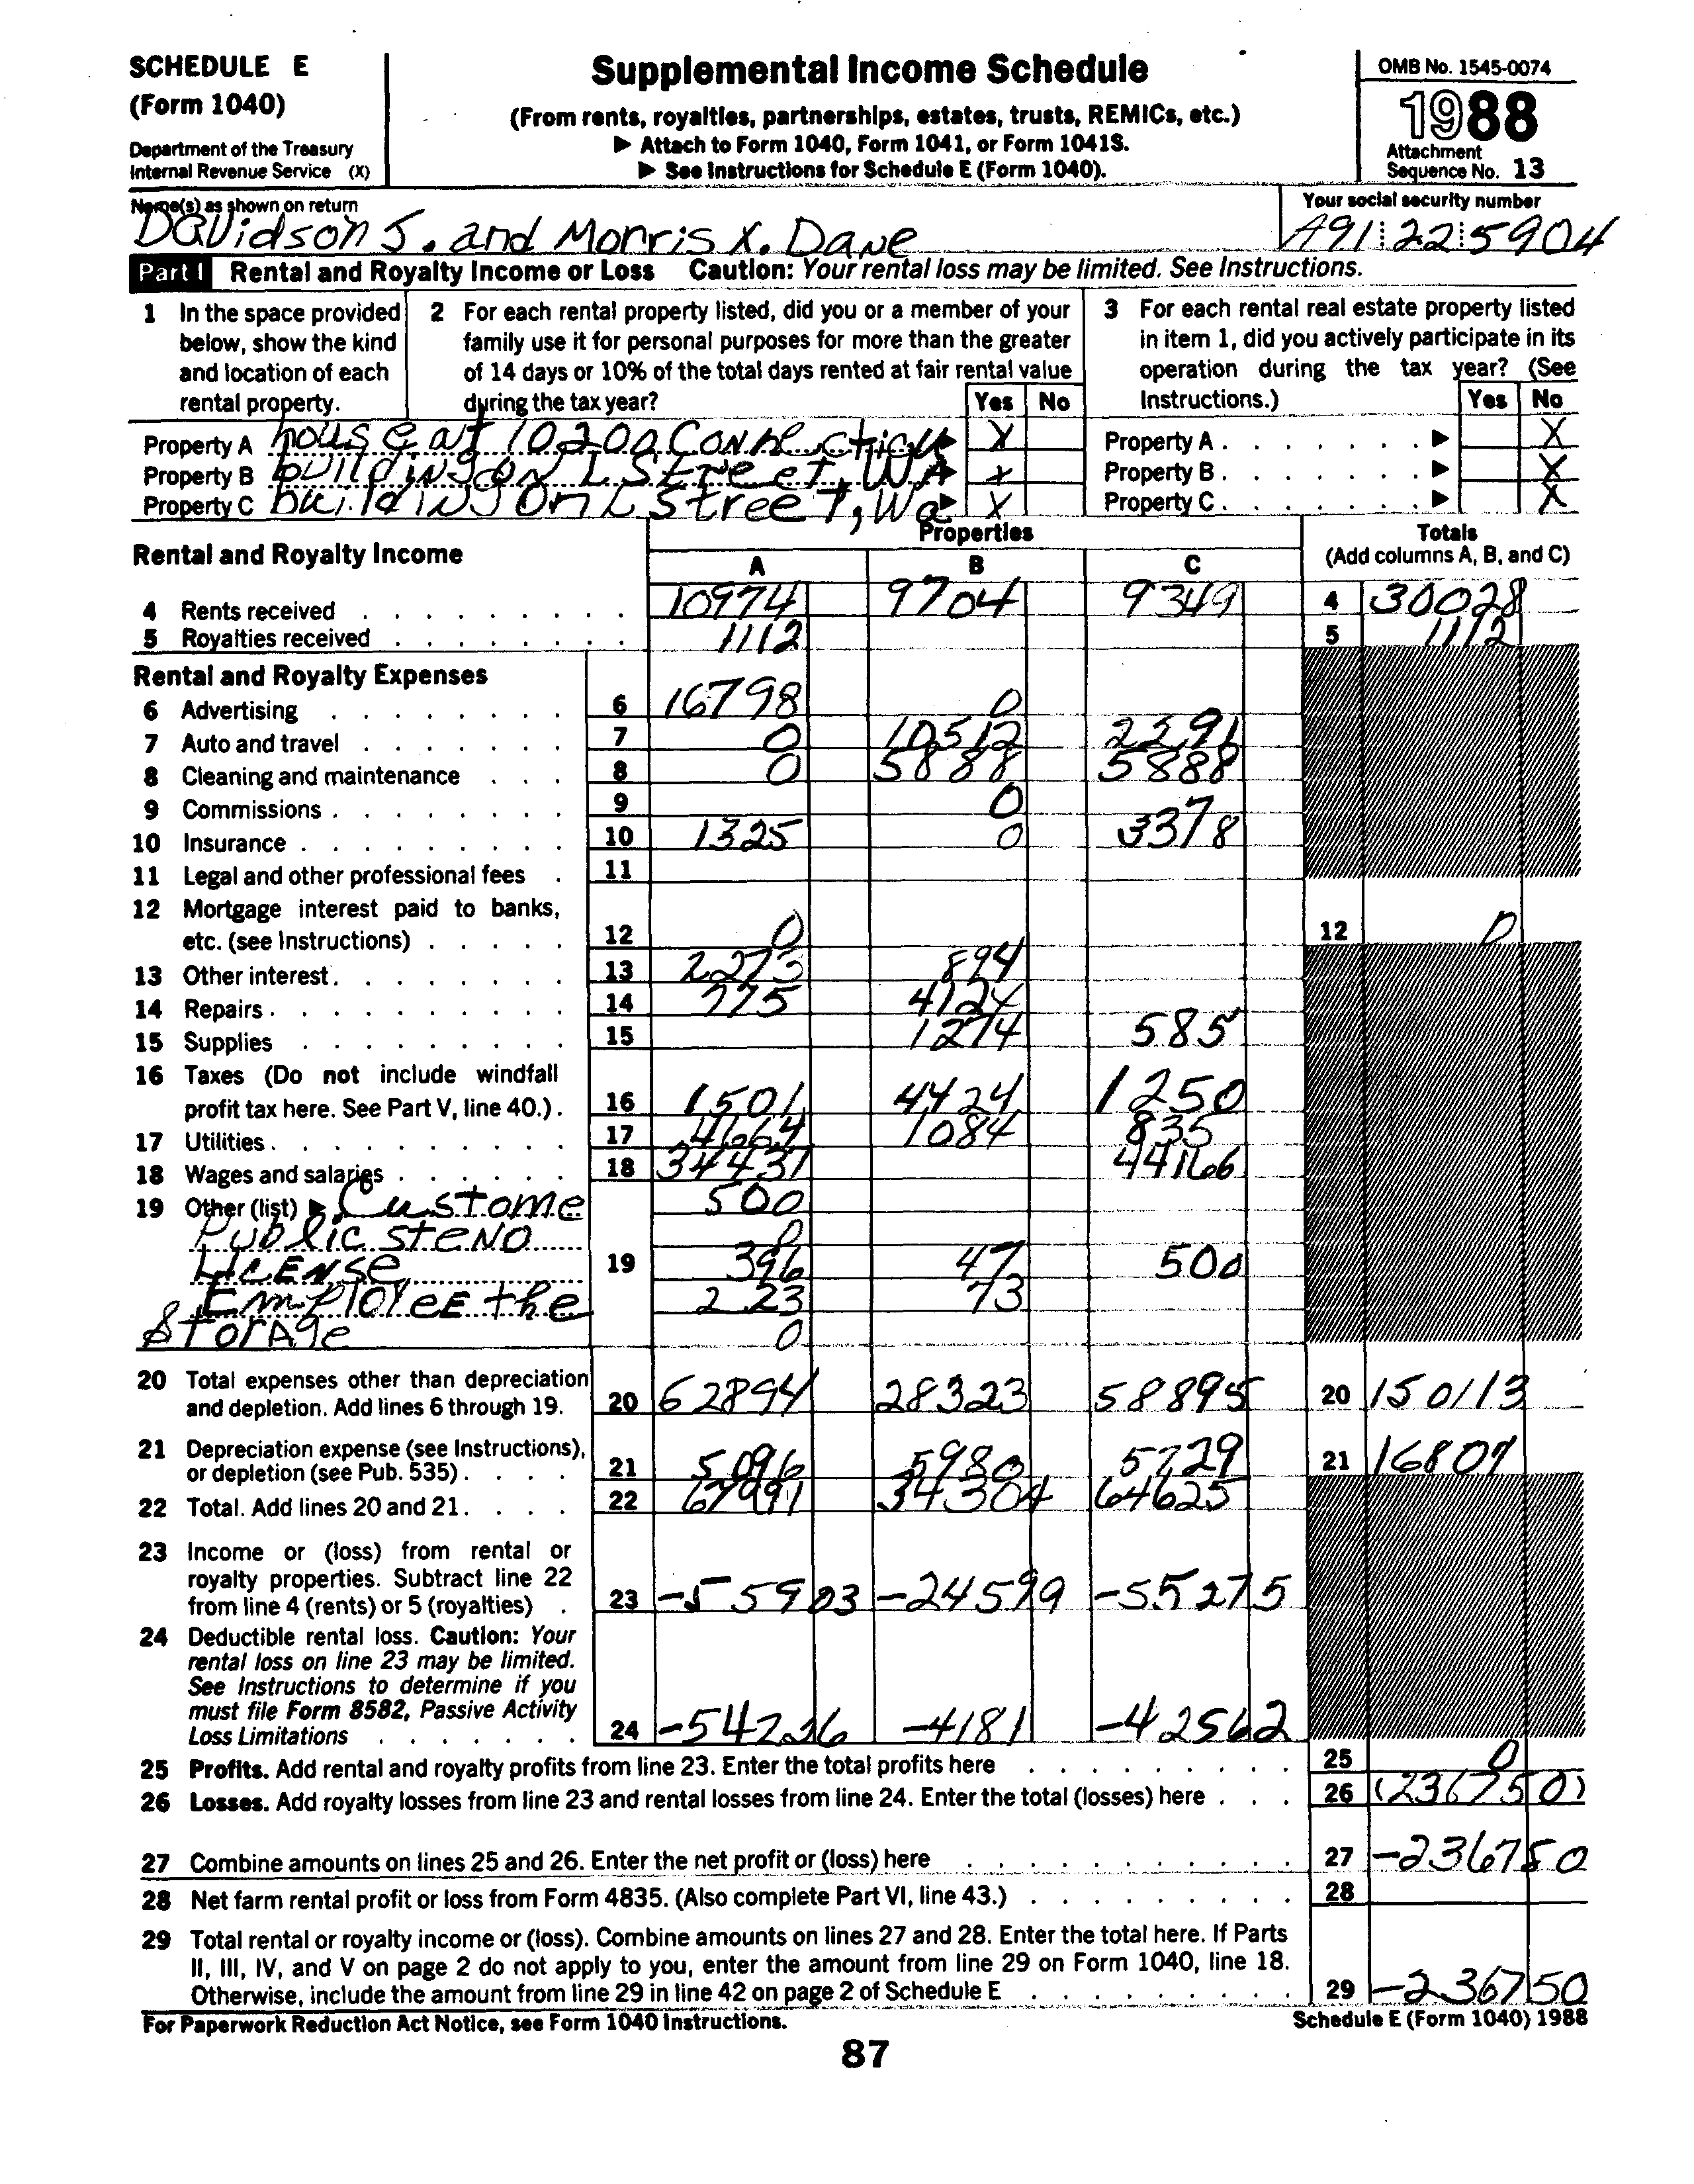 SCHEDULE E
(Form 1040)
Department of the Treasury
Internal Revenue Service (X)
Supplemental Income Schedule
(From rents, royalties, partnerships, estates, trusts, REMICs, etc.)
▶ Attach to Form 1040, Form 1041, or Form 1041S.
▶ See Instructions for Schedule E (Form 1040).
OMB No. 1545-0074
1988
Attachment
Sequence No. 13
Name(s) as shown on return
Davidson J. and Morris X. Dave
Your social security number
A91 22 5904
Part I Rental and Royalty Income or Loss Caution: Your rental loss may be limited. See Instructions.
1 In the space provided
below, show the kind
and location of each
rental property.
2 For each rental property listed, did you or a member of your
family use it for personal purposes for more than the greater
of 14 days or 10% of the total days rented at fair rental value
during the tax year? Yes No
3 For each rental real estate property listed
in item 1, did you actively participate in its
operation during the tax year? (See
Instructions.) Yes No
Property A house at 10200 Connecticu ▶ X
Property B building on L Street, WA ▶ X
Property C building on L Street, Wa ▶ X
Property A ▶ X
Property B ▶ X
Property C ▶ X
Rental and Royalty Income
Properties
A B C
Totals
(Add columns A, B, and C)
4 Rents received 10974 9704 9349 4 30028
5 Royalties received 1112 5 1112
Rental and Royalty Expenses
6 Advertising 6 16798 0
7 Auto and travel 7 0 10512 2291
8 Cleaning and maintenance 8 0 5888 5888
9 Commissions 9 0
10 Insurance 10 1325 0 3378
11 Legal and other professional fees 11
12 Mortgage interest paid to banks,
etc. (see Instructions) 12 0 12 0
13 Other interest 13 2273 894
14 Repairs 14 775 4124
15 Supplies 15 1274 585
16 Taxes (Do not include windfall
profit tax here. See Part V, line 40.) 16 1501 4424 1250
17 Utilities 17 4664 1084 835
18 Wages and salaries 18 34437 44166
19 Other (list) ▶ Custome 500
Public steno 0
LICENSE 19 396 47 500
Employee the 223 73
Storage 0
20 Total expenses other than depreciation
and depletion. Add lines 6 through 19. 20 62894 28323 58895 20 150113
21 Depreciation expense (see Instructions),
or depletion (see Pub. 535) 21 5096 5980 5729 21 16807
22 Total. Add lines 20 and 21 22 67991 34304 64625
23 Income or (loss) from rental or
royalty properties. Subtract line 22
from line 4 (rents) or 5 (royalties) 23 -55903 -24599 -55275
24 Deductible rental loss. Caution: Your
rental loss on line 23 may be limited.
See Instructions to determine if you
must file Form 8582, Passive Activity
Loss Limitations 24 -54226 -4181 -42562
25 Profits. Add rental and royalty profits from line 23. Enter the total profits here 25 0
26 Losses. Add royalty losses from line 23 and rental losses from line 24. Enter the total (losses) here 26 (236750)
27 Combine amounts on lines 25 and 26. Enter the net profit or (loss) here 27 -236750
28 Net farm rental profit or loss from Form 4835. (Also complete Part VI, line 43.) 28
29 Total rental or royalty income or (loss). Combine amounts on lines 27 and 28. Enter the total here. If Parts
II, III, IV, and V on page 2 do not apply to you, enter the amount from line 29 on Form 1040, line 18.
Otherwise, include the amount from line 29 in line 42 on page 2 of Schedule E 29 -236750
For Paperwork Reduction Act Notice, see Form 1040 Instructions. Schedule E (Form 1040) 1988
87